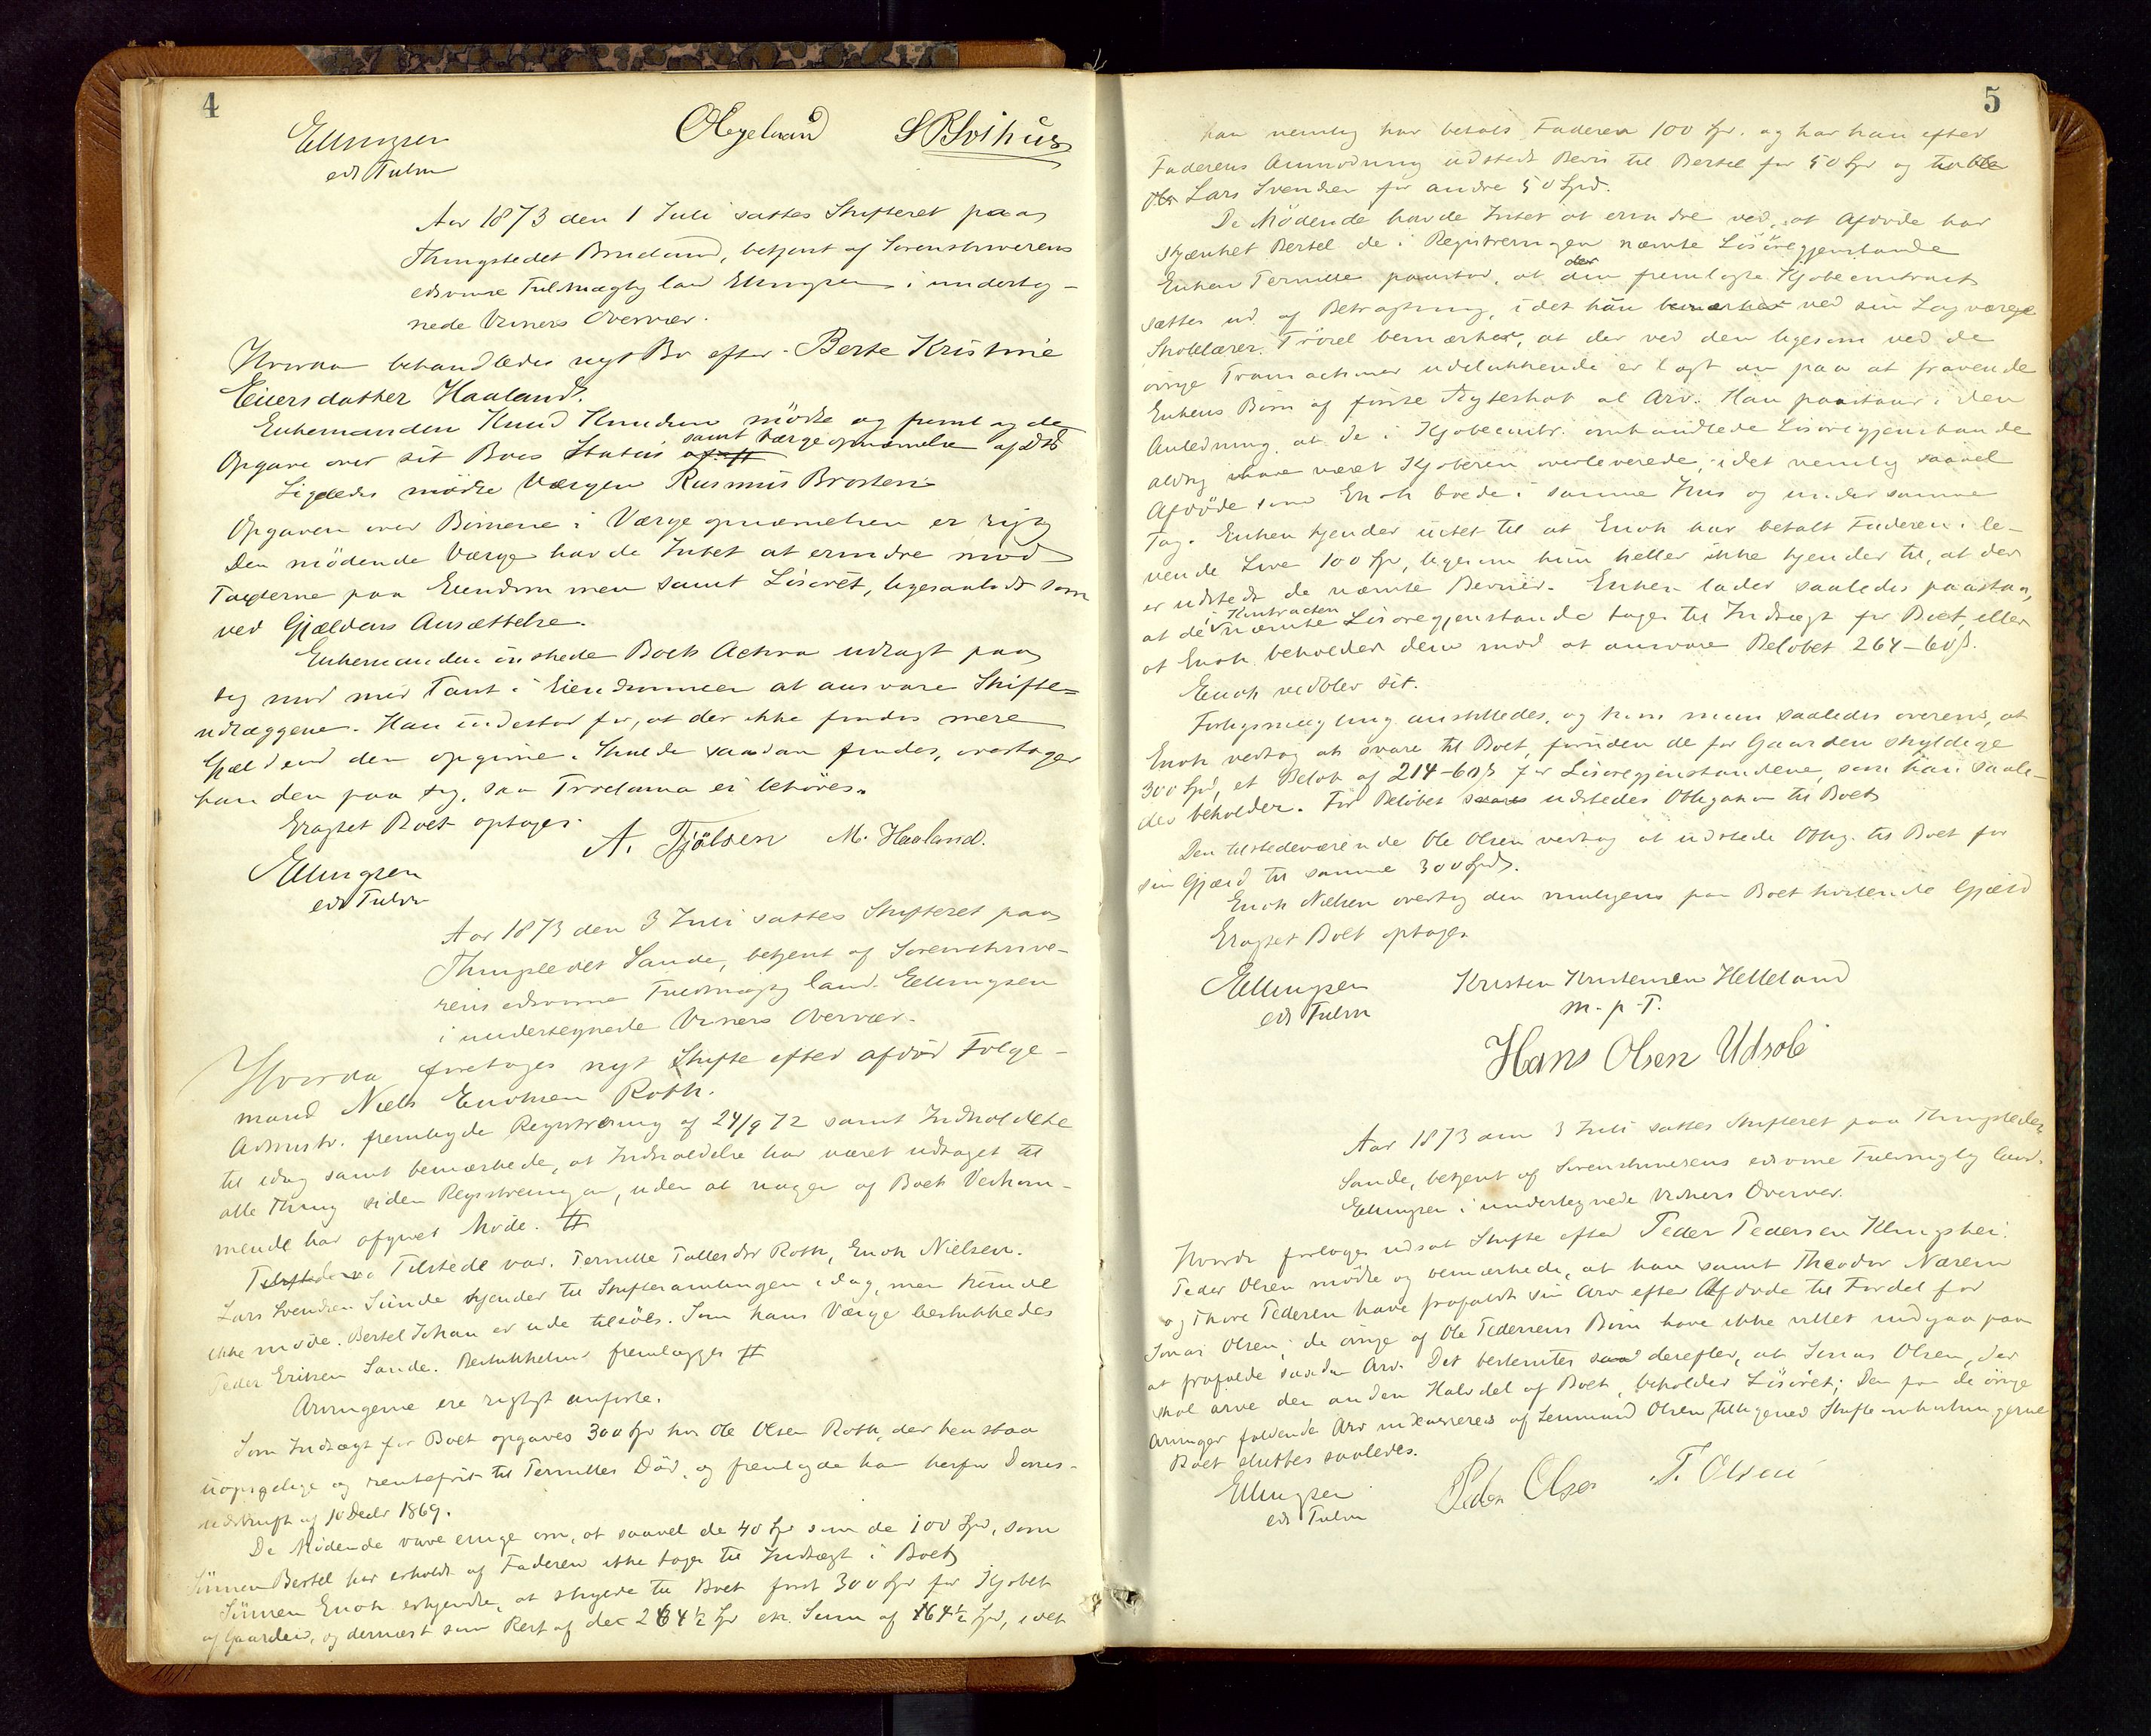 4
Ellingsen
eds Fulm
Obgeland SBSvihus
Aar 1873 den 1 Juli sattes Skifteret paa
Thingstedet Brueland, betjent af Sorenskriverens
edsvorne Fuldmægtig cand Ellingsen i underteg-
nede Vidners Overvær.
Hvorda behandledes nyt Bo efter Berte Kristine
Eiversdatter Haaland.
Enkemanden Knud Knudsen mødte og fremlagde
Opgave over sit Boes Status samt Værgeopnævnelse af DD
Ligeledes mødte Værgen Rasmus Brosten
Opgaven over Børnene i Værgeopnævnelsen er rigtig
Den mødende Værge havde Intet at erindre mod
Taxterne paa Eiendommen samt Løsøret, ligesaalidt som
ved Gjældens Ansættelse.
Enkemanden ønskede Boets Activa udlagt paa
sig mod med Pant i Eiendommen at ansvare Skifte-
udlæggene. Han indestod for, at der ikke findes mere
Gjæld end den opgivne. Skulde saadan findes, overtager
han den paa sig, saa Proclama ei behøves.
Eragtet Boet optages.
A. Tjølsen M. Haaland.
Ellingsen
eds Fulm
Aar 1873 den 3 Juli sattes Skifteret paa
Thingstedet Sande, betjent af Sorenskrive-
rens edsvorne Fuldmægtig cand. Ellingsen
i undertegnede Vidners Overvær.
Hvorda foretages nyt Skifte efter afdød Følge-
mand Niels Enoksen Roth.
Adminstr. fremlagde Registrering af 24/9 72 samt Indkaldelse
til idag samt bemærkede, at Indkaldelse har været udtaget til
alle Thing siden Registreringen, uden at nogen af Boets Vedkom-
mende har afgivet Møde.
Tilstede var. Pernille Tollesdtr Roth, Enok Nielsen.
Lars Svendsen Sunde kjender til Skiftesamlingen idag, men kunde
ikke møde. Bertel Johan er ude tilsøes. Som hans Værge beskikkedes
Peder Eriksen Sande. Beskikkelsen fremlægges
Arvingerne ere rigtigt anførte.
Som Indtægt for Boet opgaves 300 Spd hos Ole Olsen Roth, der henstaa
uopsigelige og rentefrit til Pernilles Død, og fremlagde han herfor
udskrift af 10 Decbr 1869.
De Mødende vare enige om, at saavel de 40 Spd som de 100 Spd, som
Sønnen Bertel har erholdt af Faderen ikke tages til Indtægt i Boet
Sønnen Enok erkjendte, at skylde til Boet først 300 Spd for Kjøbet
af Gaarden, og dernæst som Rest af det 264½ Spd en Sum af 164½ Spd, idet
5
han nemlig har betalt Faderen 100 Spd. og har han efter
Faderens Anmodning udstedt Bevis til Bertel for 50 Spd og
Lars Svendsen for andre 50 Spd.
De Mødende havde Intet at erindre ved, at Afdøde har
skjænket Bertel de i Registreringen nævnte Løsøregjenstande
Enken Pernille paastod, at den fremlagte Kjøbecontract
sættes ud af Betragtning, idet hun ved sin Lagværge
Skolelærer Trøvel bemærker, at der ved den ligesom ved de
øvrige Transactioner udelukkende er lagt an paa at fravende
Enkens Børn af første Ægteskab al Arv. Han paastaar i den
Anledning, at de i Kjøbecontr. omhandlede Løsøregjenstande
aldrig have været Kjøberen overleverede, idet nemlig saavel
Afdøde som Enok boede i samme Hus og under samme
Tag. Enken kjender intet til at Enok har betalt Faderen i le-
vende Live 100 Spd, ligesom hun heller ikke kjender til, at der
er udstedt de nævnte Beviser. Enken lader saaledes paastaa,
at de i Kontracten nævnte Løsøregjenstande tages til Indtægt for Boet, eller
at Enok beholder dem mod at ansvare Beløbet 264-60ß.
Enok vedblev sit.
Forligsmægling anstilledes, og kom man saaledes overens, at
Enok vedtog at svare til Boet, foruden de for Gaarden skyldige
300 Spd, et Beløb af 214-60ß for Løsøregjenstandene, som han saale-
des beholder. For Beløbet udstedes Obligation til Boet
Den tilstedeværende Ole Olsen vedtog at udstede Oblig. til Boet for
sin Gjæld til samme 300 Spd.
Enok Nielsen overtog den muligens paa Boet hvilende Gjæld
Eragtet Boet optages
Ellingsen
eds Fulm
Kristen Kristensen Helleland
m. p. P.
Hans Olsen Udsole
Aar 1873 den 3 Juli sattes Skifteret paa Thingstedet
Sande, betjent af Sorenskriverens edsvorne Fuldmægtig cand.
Ellingsen i undertegnede Vidners Overvær.
Hvorda foretages udsat Skifte efter Peder Pedersen Klingshei.
Peder Olsen mødte og bemærkede, at han samt Theodor Nærem
og Thore Pedersen have frafaldt sin Arv efter Afdøde til Fordel for
Jonas Olsen; de øvrige af Ole Pedersens Børn have ikke villet indgaa paa
at frafalde saadan Arv. Det bestemtes derefter, at Jonas Olsen, der
skal arve den anden Halvdel af Boet, beholder Løsøret; Den paa de øvrige
Arvinger faldende Arv indcasseres af Lensmand Olsen tilligemed Skifteomkostningerne
Boet sluttes saaledes.
Ellingsen
eds Fulm
Peder Olsen T. Olsen